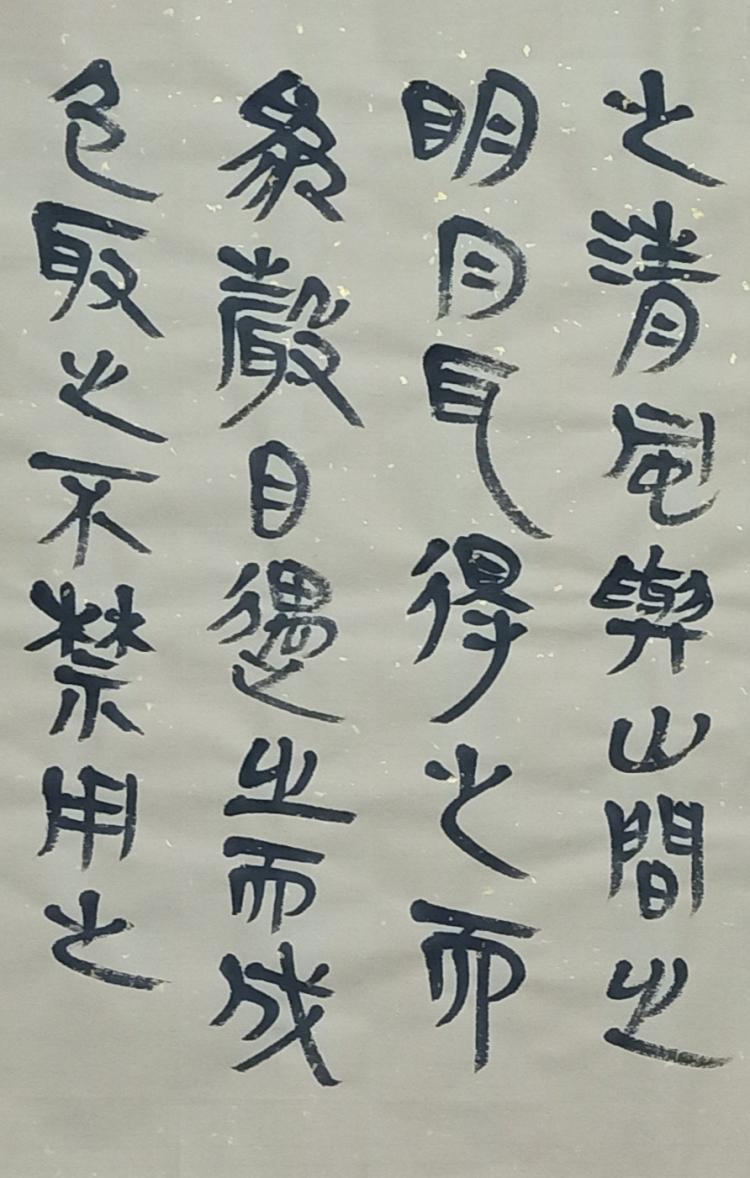 之清風與山間之
明月耳得之而
為聲目遇之而成
色取之不禁用之